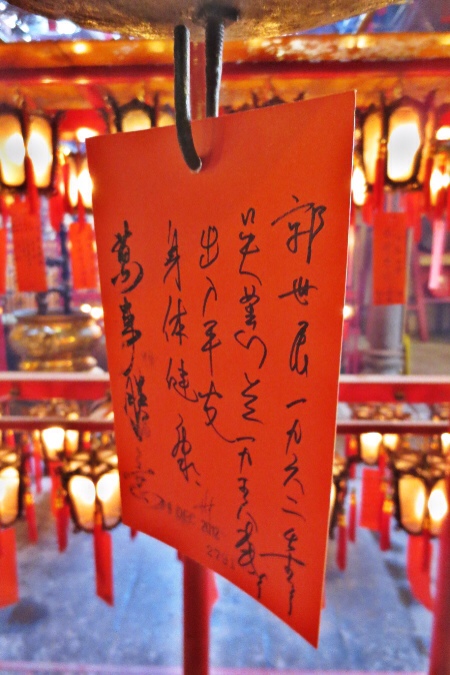 郭世民一九六二年
吴 一九五八年
出入平安
身体健康
萬事勝意
DEC 2012